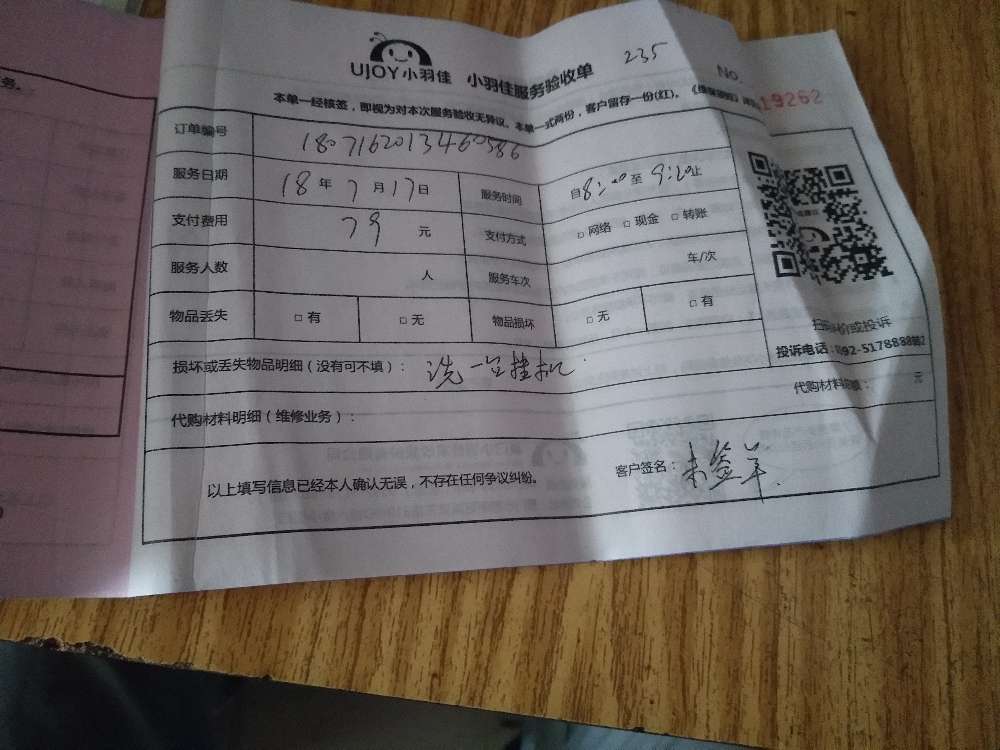 务。
UJOY小羽佳 小羽佳服务验收单 235
No.
19262
本单一经核签，即视为对本次服务验收无异议。本单一式两份，客户留存一份(红)。
订单编号 1807162013460586
服务日期 18年7月17日 服务时间 自8:20至9:20止
支付费用 79元 支付方式 □网络 □现金 □转账
服务人数 人 服务车次 车/次
物品丢失 □有 □无 物品损坏 □无 □有
扫码评价或投诉
投诉电话：
损坏或丢失物品明细（没有可不填）：洗一台挂机
代购材料明细（维修业务）： 代购材料 元
以上填写信息已经本人确认无误，不存在任何争议纠纷。 客户签名：未签单